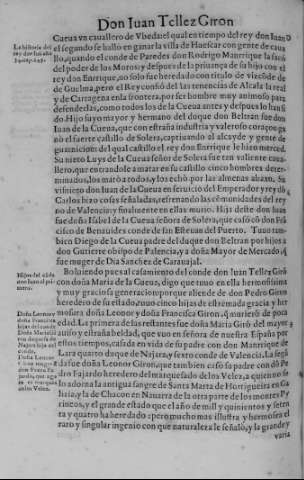 Don Iuan Tellez Giron
Cueua vn cauallero de Vbeda: el qual en tiempo del rey don Iuan
La historia del
el segundo se hallo en ganar la villa de Huescar con gente de caua
llo, quando el conde de Paredes don Rodrigo Manrrique la sacó
del poder de los Moros: y despues de la priuança de su hijo con el
rey don Enrrique, no solo fue heredado con titulo de vizconde
de Guelma, pero el Rey confió del las tenencias de Alcala la real
y de Cartagena en la frontera, por ser hombre muy animoso para
defenderlas, como todos los de la Cueua antes y despues lo han si
do. Hijo suyo mayor y hermano del duque don Beltran fue don
Iuan de la Cueua, que con estraña industria y valeroso coraçon ga
nó el fuerte castillo de Solera, captiuando al alcayde y gente de
guarnicion: del qual castillo el rey don Enrrique le hizo merced.
Su nieto Luys de la Cueua señor de Solera fue tan valiente caua
llero, que entrandole a matar en su castillo cinco hombres deter
minados, los mató a todos, y los echó por las almenas abaxo. Su
visnieto don Iuan de la Cueua en seruicio del Emperador y rey dō
Carlos hizo cosas señaladas, refrenando las comunidades del rey
no de Valencia, y finalmente en ellas murio. Hija deste don Iuan
fue doña Isabel de la Cueua señora de Solera, que casó con dō Frā
cisco de Benauides conde de san Esteuan del Puerto. Tuuo tam
bien Diego de la Cueua padre del duque don Beltran por hijos a
don Gutierre obispo de Palencia, y a doña Mayor de Mercado, q̃
fue muger de Dia Sanchez de Carauajal.
Boluiendo pues al casamiento del conde don Iuan Tellez Girō
Hijos del
con doña Maria de la Cueua, digo que tuuo en ella hermosissima
y muy graciosa generacion: porque aliende de don Pedro Giron
heredero de su estado, vuo cinco hijas de estremada gracia y her
Doña Leonor y
mosura doña Leonor y doña Francisca Giron, q̃ murieró de poca
doña Francisca
hijas del conde
dad. La primera de las restantes fue doña Maria Girō del mayor y
auiso y estraña beldad, que vuo en señora de nuestra España por
estos tiempos, casada en vida de su padre con don Manrrique de
Lara quarto duque de Najara, y sexto conde de Valencia. La segū
Doña Leonor
da fue doña Leonor Giron, que tambien caso su padre con dō Pe
dro Fajardo heredero del marquesado de los Velez, a quien no so
lo adorna la antigua sangre de Santa Marta de Hortigueira en Ga
lizia, y la de Chacon en Nauarra de la otra parte de los montes Py
rineos, y el grande estado que el año de mill y quinientos y seten
ta y quatro ha heredado: pero mucho mas illustra y hermosea el
raro y singular ingenio con que naturaleza le señaló, y la grande y
varia